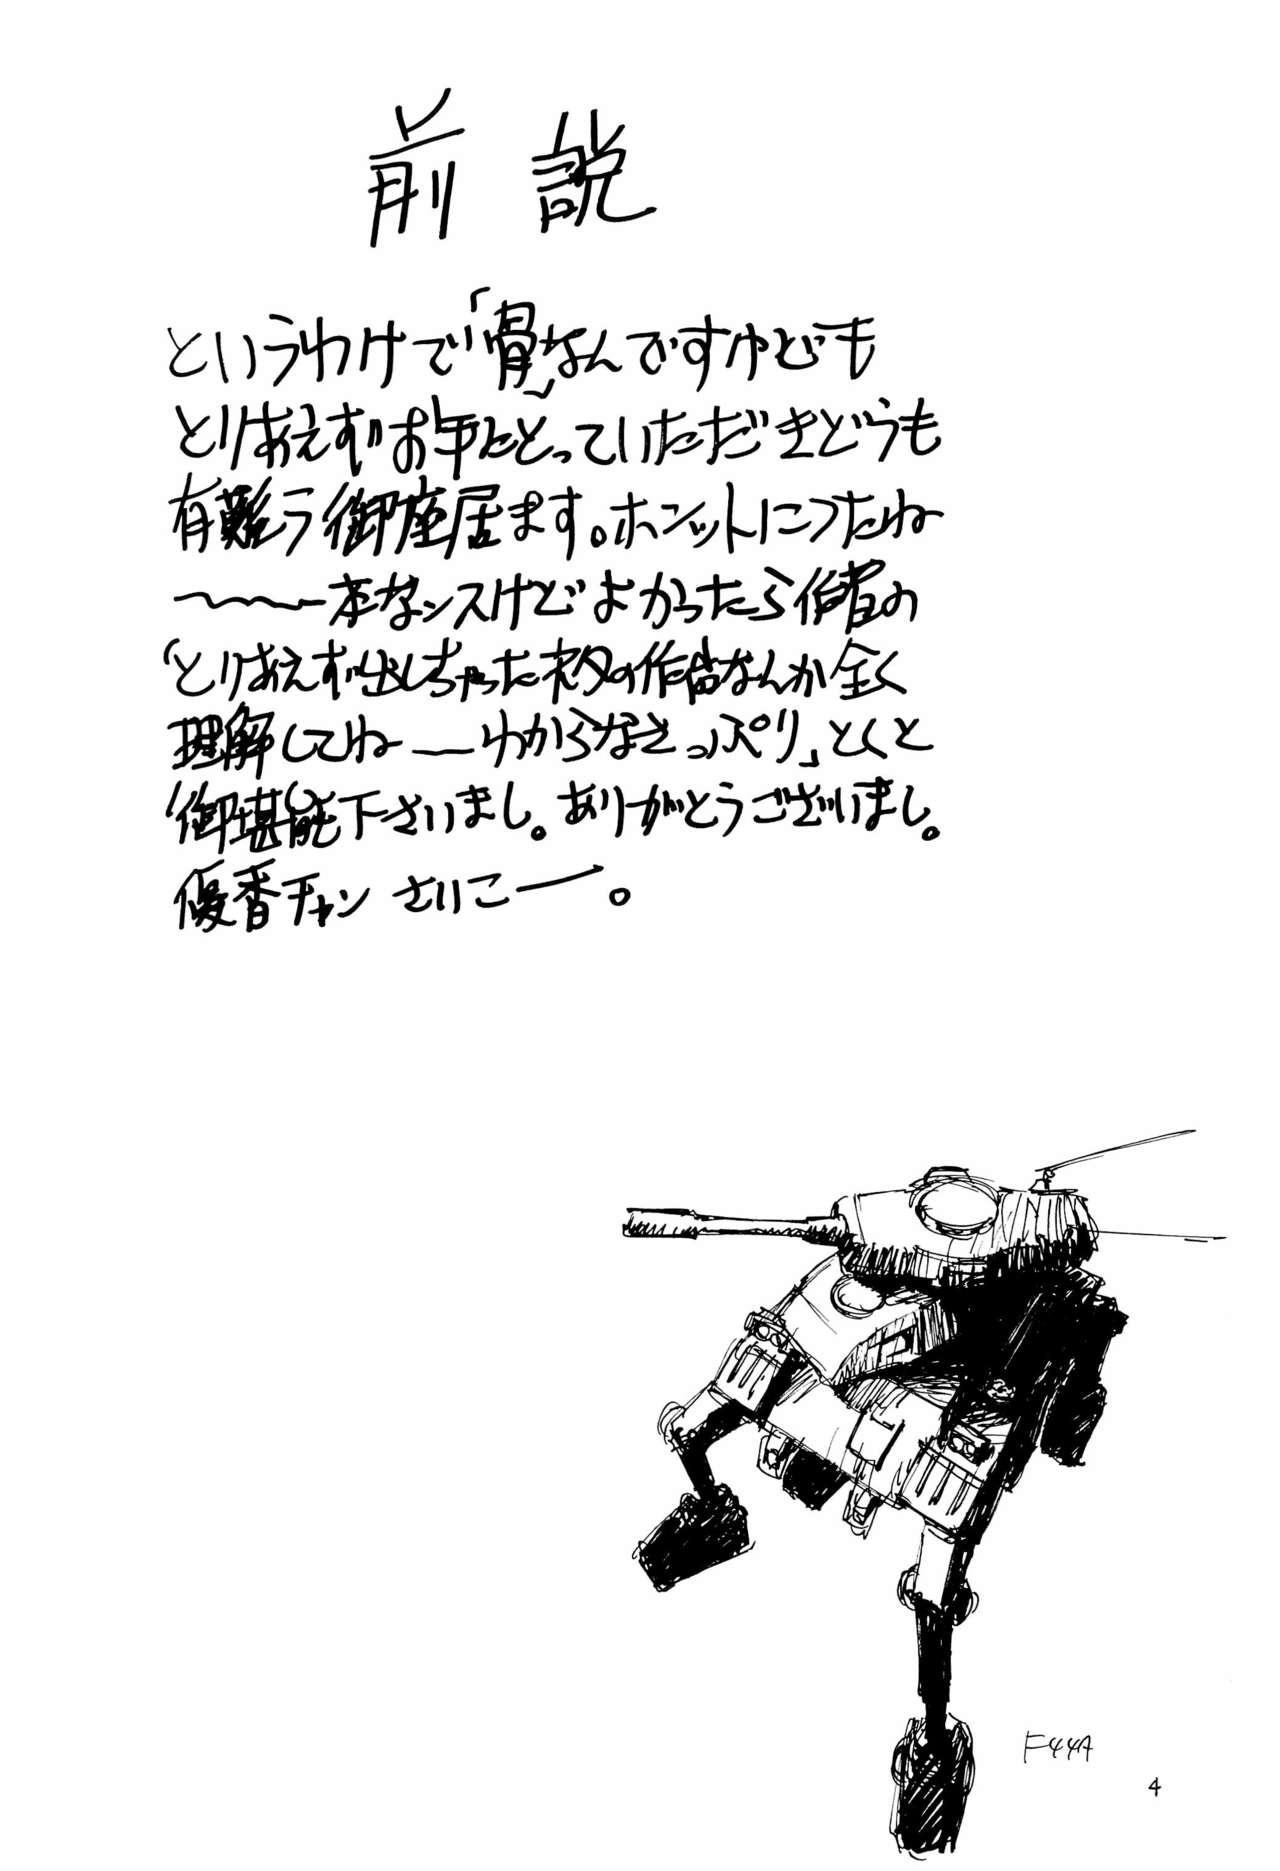 前説
というわけで「骨」なんですけども
とりあえずお手にとっていただきどうも
有難う御座居ます。ホンットにつたね
〜〜〜本なンスけどよかったら作者の
「とりあえず出しちゃったネタの作品なんか全く
理解してねーーわからなさっぷり」とくと
御堪能下さいまし。ありがとうございまし。
優香チャン さいこー。
F44A
4